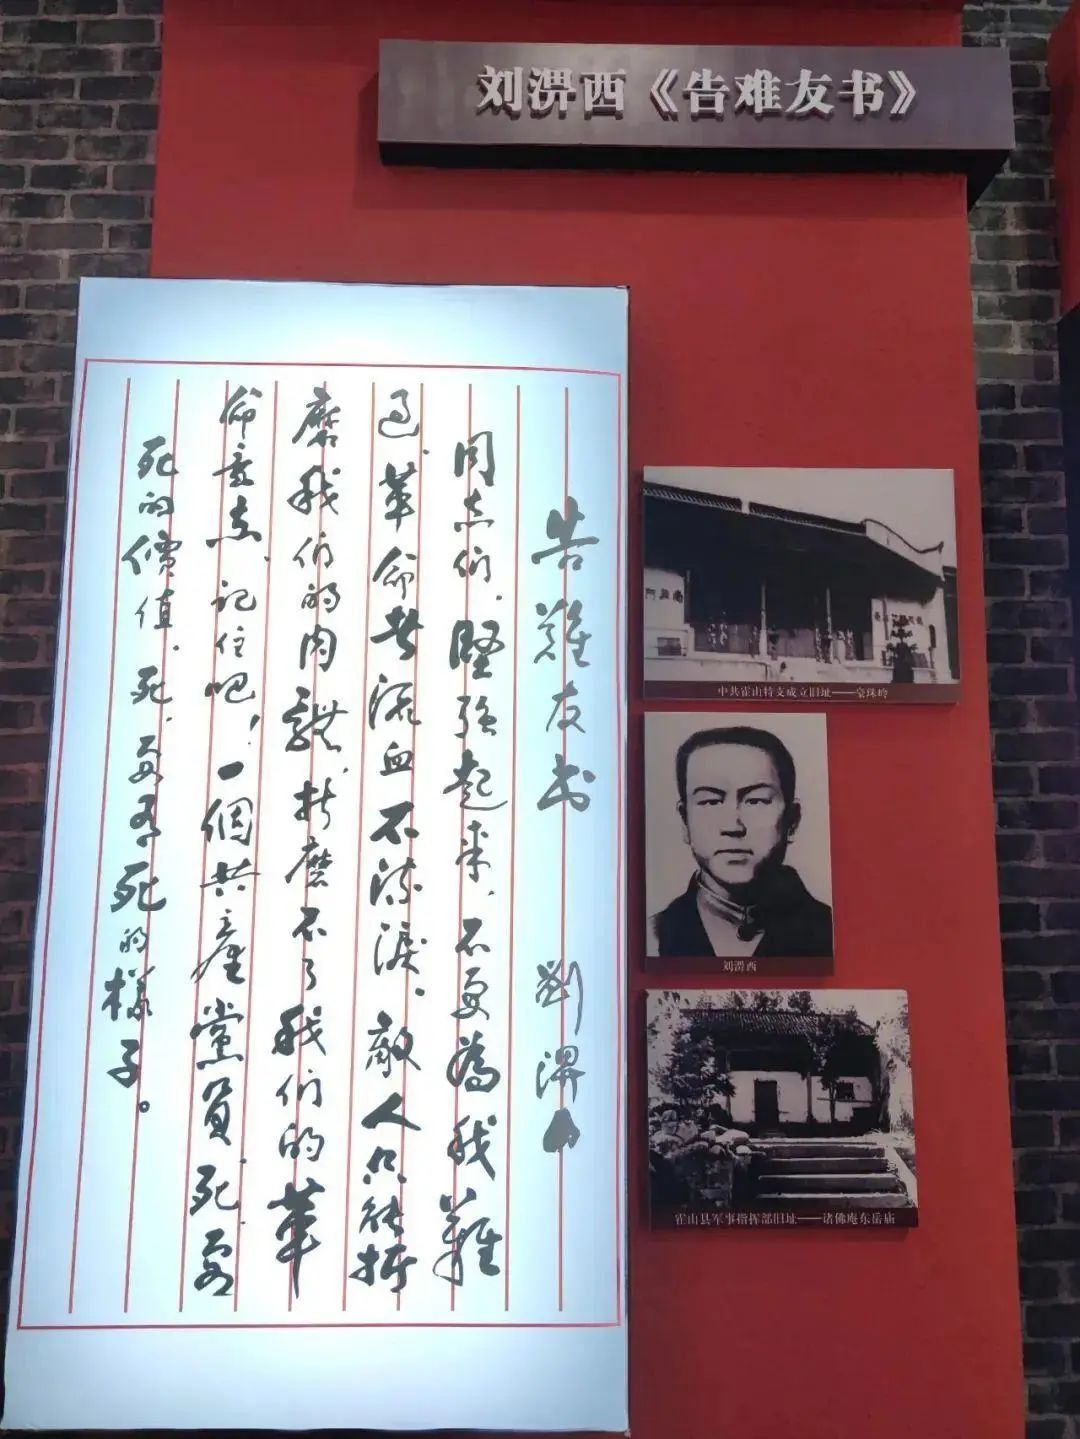 刘淠西《告难友书》
告難友书 劉淠西
同志们，堅强起来，不要為我難
过，革命者流血不流淚，敵人只能折
磨我们的肉體，折磨不了我们的革
命意志，记住吧！一個共產黨員，死，要
死的價值，死，要有死的樣子。
中共霍山特支成立旧址——
刘淠西
霍山县军事指挥部旧址——诸佛庵东岳庙